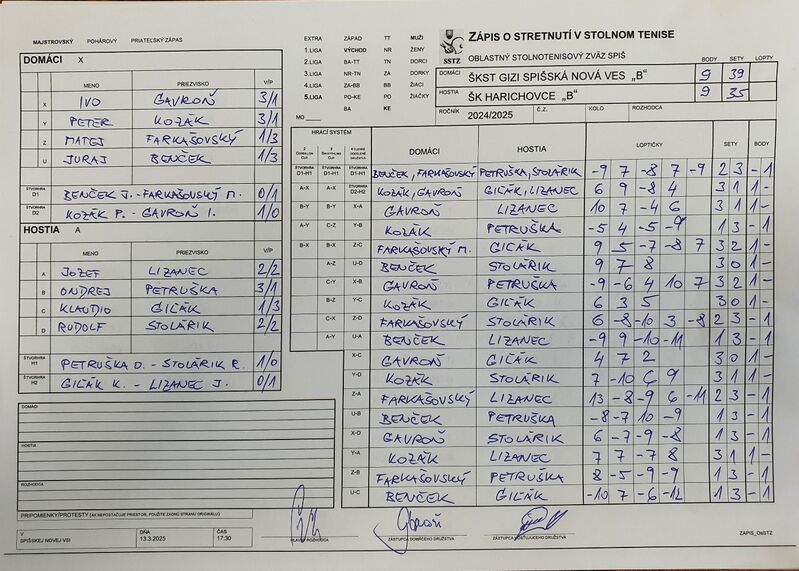 MAJSTROVSKÝ POHÁROVÝ PRIATEĽSKÝ ZÁPAS
EXTRA ZÁPAD TT MUŽI
1.LIGA VÝCHOD NR ŽENY
2.LIGA BA-TT TN DORCI
3.LIGA NR-TN ZA DORKY
4.LIGA ZA-BB BB ŽIACI
5.LIGA PO-KE PO ŽIAČKY
BA KE
MO
SSTZ
ZÁPIS O STRETNUTÍ V STOLNOM TENISE
OBLASTNÝ STOLNOTENISOVÝ ZVÄZ SPIŠ
BODY SETY LOPTY
DOMÁCI ŠKST GIZI SPIŠSKÁ NOVÁ VES „B" 9 39
HOSTIA ŠK HARICHOVCE „B" 9 35
ROČNÍK 2024/2025 Č.Z. KOLO ROZHODCA
DOMÁCI X
MENO PRIEZVISKO V/P
X IVO GAVROŇ 3/1
Y PETER KOZÁK 3/1
Z MATEJ FARKAŠOVSKÝ 1/3
U JURAJ BENČEK 1/3
ŠTVORHRA D1 BENČEK J. - FARKAŠOVSKÝ M. 0/1
ŠTVORHRA D2 KOZÁK P. - GAVROŇ I. 1/0
HOSTIA A
MENO PRIEZVISKO V/P
A JOZEF LIZANEC 2/2
B ONDREJ PETRUŠKA 3/1
C KLAUDIO GIĽÁK
D RUDOLF STOLÁRIK 2/2
ŠTVORHRA H1 PETRUŠKA O. - STOLÁRIK R. 1/0
ŠTVORHRA H2 GIĽÁK K. - LIZANEC J. 0/1
DOMÁCI
HOSTIA
ROZHODCA
PRIPOMIENKY/PROTESTY (AK NEPOSTAČUJE PRIESTOR, POUŽITE ZADNÚ STRANU ORIGINÁLU)
HRACÍ SYSTÉM DOMÁCI HOSTIA LOPTIČKY SETY BODY
ŠTVORHRA D1-H1 ŠTVORHRA D1-H1 ŠTVORHRA D1-H1 BENČEK, FARKAŠOVSKÝ PETRUŠKA, STOLÁRIK -9 7 -8 7 -9 2 3 - 1
A-X A-X D2-H2 KOZÁK, GAVROŇ GIĽÁK, LIZANEC 6 9 -8 4 3 1 1 -
B-Y B-Y X-A GAVROŇ LIZANEC 10 7 -4 6 3 1 1 -
A-Y C-Z Y-B KOZÁK PETRUŠKA -5 4 -5 -9 1 3 - 1
B-X B-X Z-C FARKAŠOVSKÝ M. GIĽÁK 9 5 -7 -8 7 3 2 1 -
A-Z U-D BENČEK STOLÁRIK 9 7 8 3 0 1 -
C-Y X-B GAVROŇ PETRUŠKA -9 -6 4 10 7 3 2 1 -
B-Z Y-C KOZÁK GIĽÁK 6 3 5 3 0 1 -
C-X Z-D FARKAŠOVSKÝ STOLÁRIK 6 -8 -10 3 -8 2 3 - 1
A-Y U-A BENČEK LIZANEC -9 9 -10 -11 1 3 - 1
X-C GAVROŇ GIĽÁK 4 7 2 3 0 1 -
Y-D KOZÁK STOLÁRIK 7 -10 6 9 3 1 1 -
Z-A FARKAŠOVSKÝ LIZANEC 13 -8 -9 6 -11 2 3 - 1
U-B BENČEK PETRUŠKA -8 -7 10 -9 1 3 - 1
X-D GAVROŇ STOLÁRIK 6 -7 -9 -8 1 3 - 1
Y-A KOZÁK LIZANEC 7 -7 8 8 3 1 1 -
Z-B FARKAŠOVSKÝ PETRUŠKA 8 -5 -9 -9 1 3 - 1
U-C BENČEK GIĽÁK -10 7 -6 -12 1 3 - 1
V SPIŠSKEJ NOVEJ VSI DŇA 13.3.2025 ČAS 17:30
HLAVNÝ ROZHODCA ZÁSTUPCA DOMÁCEHO DRUŽSTVA ZÁSTUPCA HOSŤUJÚCEHO DRUŽSTVA ZAPIS_OsSTZ